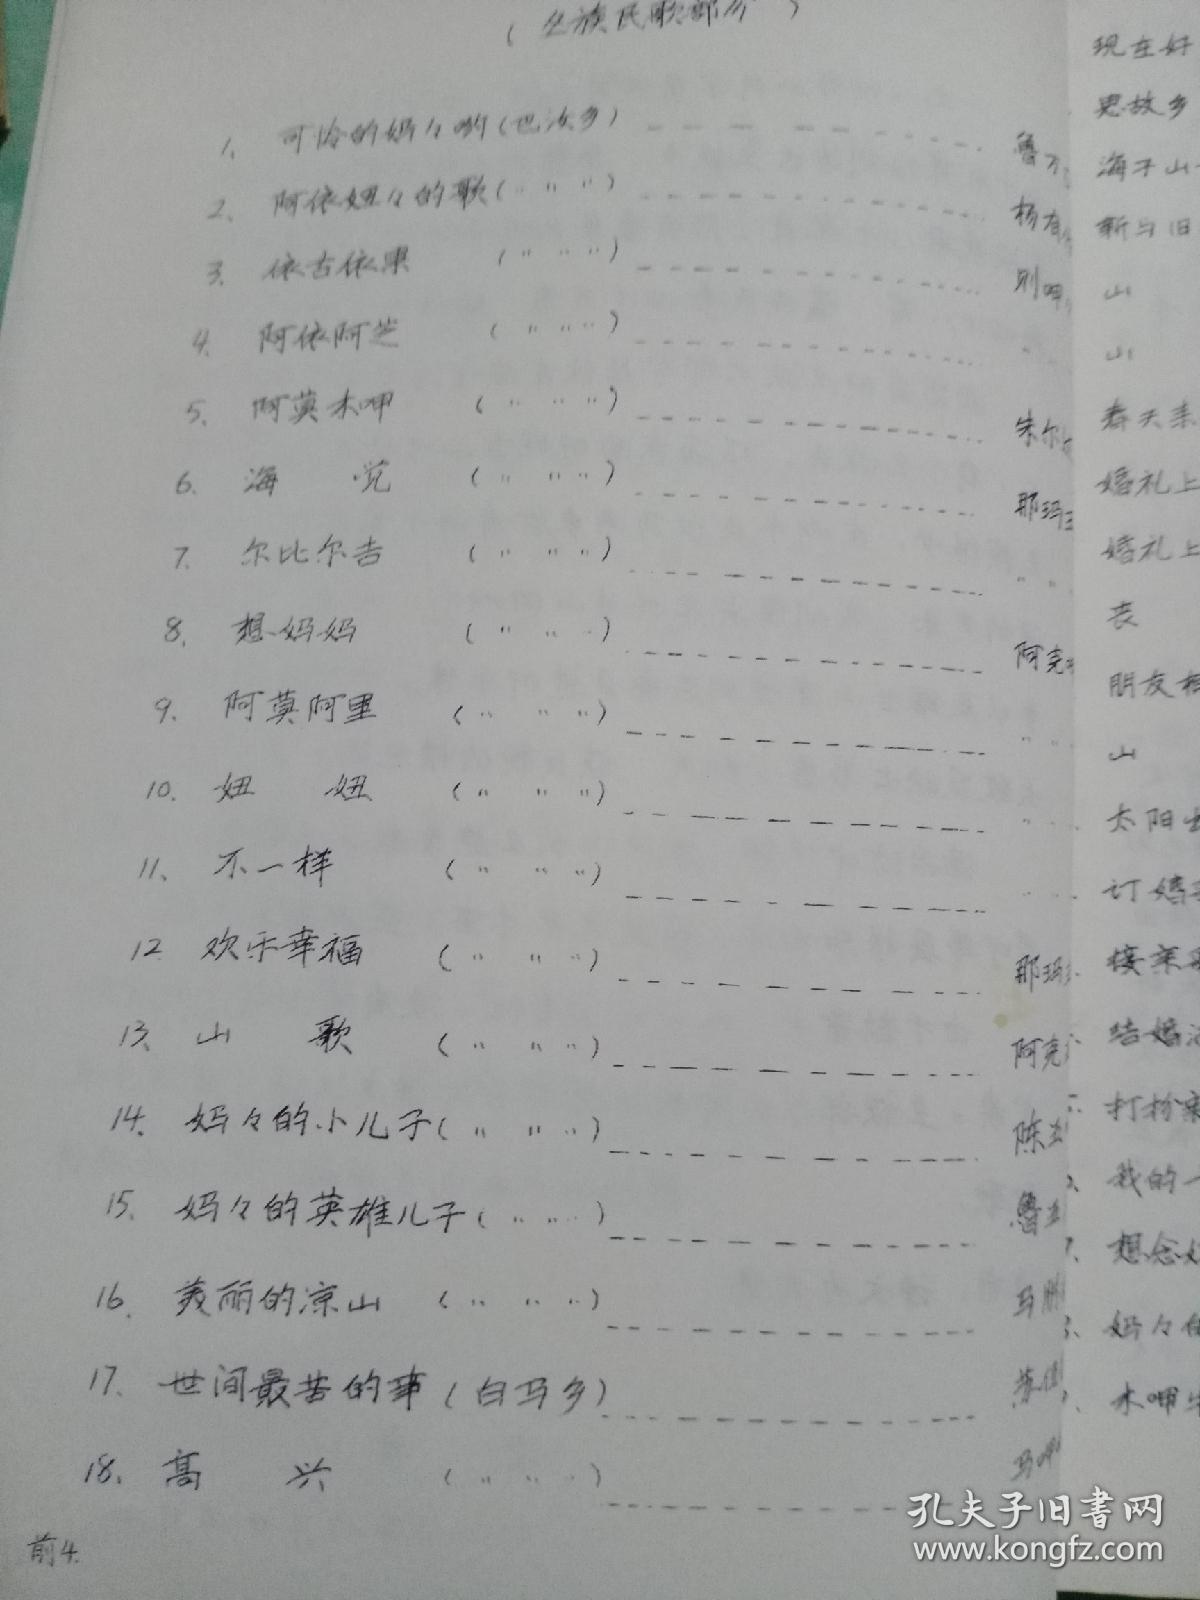 族民歌部分)
1. 可怜的妈々哟(也汝乡)
鲁万
2. 阿依妞々的歌(〃 〃 〃)
杨有
3. 依古依果 (〃 〃 〃)
则呷
4. 阿依阿芝 (〃 〃 〃)
〃
5. 阿莫木呷 (〃 〃 〃)
朱尔
6. 海 觉 (〃 〃 〃)
那玛
7. 尔比尔吉 (〃 〃 〃)
〃 〃
8. 想妈妈 (〃 〃 〃)
阿克
9. 阿莫阿里 (〃 〃 〃)
〃
10. 妞 妞 (〃 〃 〃)
〃
11、 不一样 (〃 〃 〃)
〃
12. 欢乐幸福 (〃 〃 〃)
那玛
13、 山 歌 (〃 〃 〃)
阿克
14. 妈々的小儿子(〃 〃 〃)
陈
15. 妈々的英雄儿子(〃 〃 〃)
鲁
16. 美丽的凉山 (〃 〃 〃)
马
17. 世间最苦的事(白马乡)
苏
18. 高 兴 (〃 〃 〃)
马呷
前4.
现在好
思故乡
海子山
新与旧
山
山
春天来
婚礼上
婚礼上
丧
朋友
山
太阳
订婚
接亲
结婚
打扮
我的一
想念
妈々的
木呷
孔夫子旧书网
www.kongfz.com